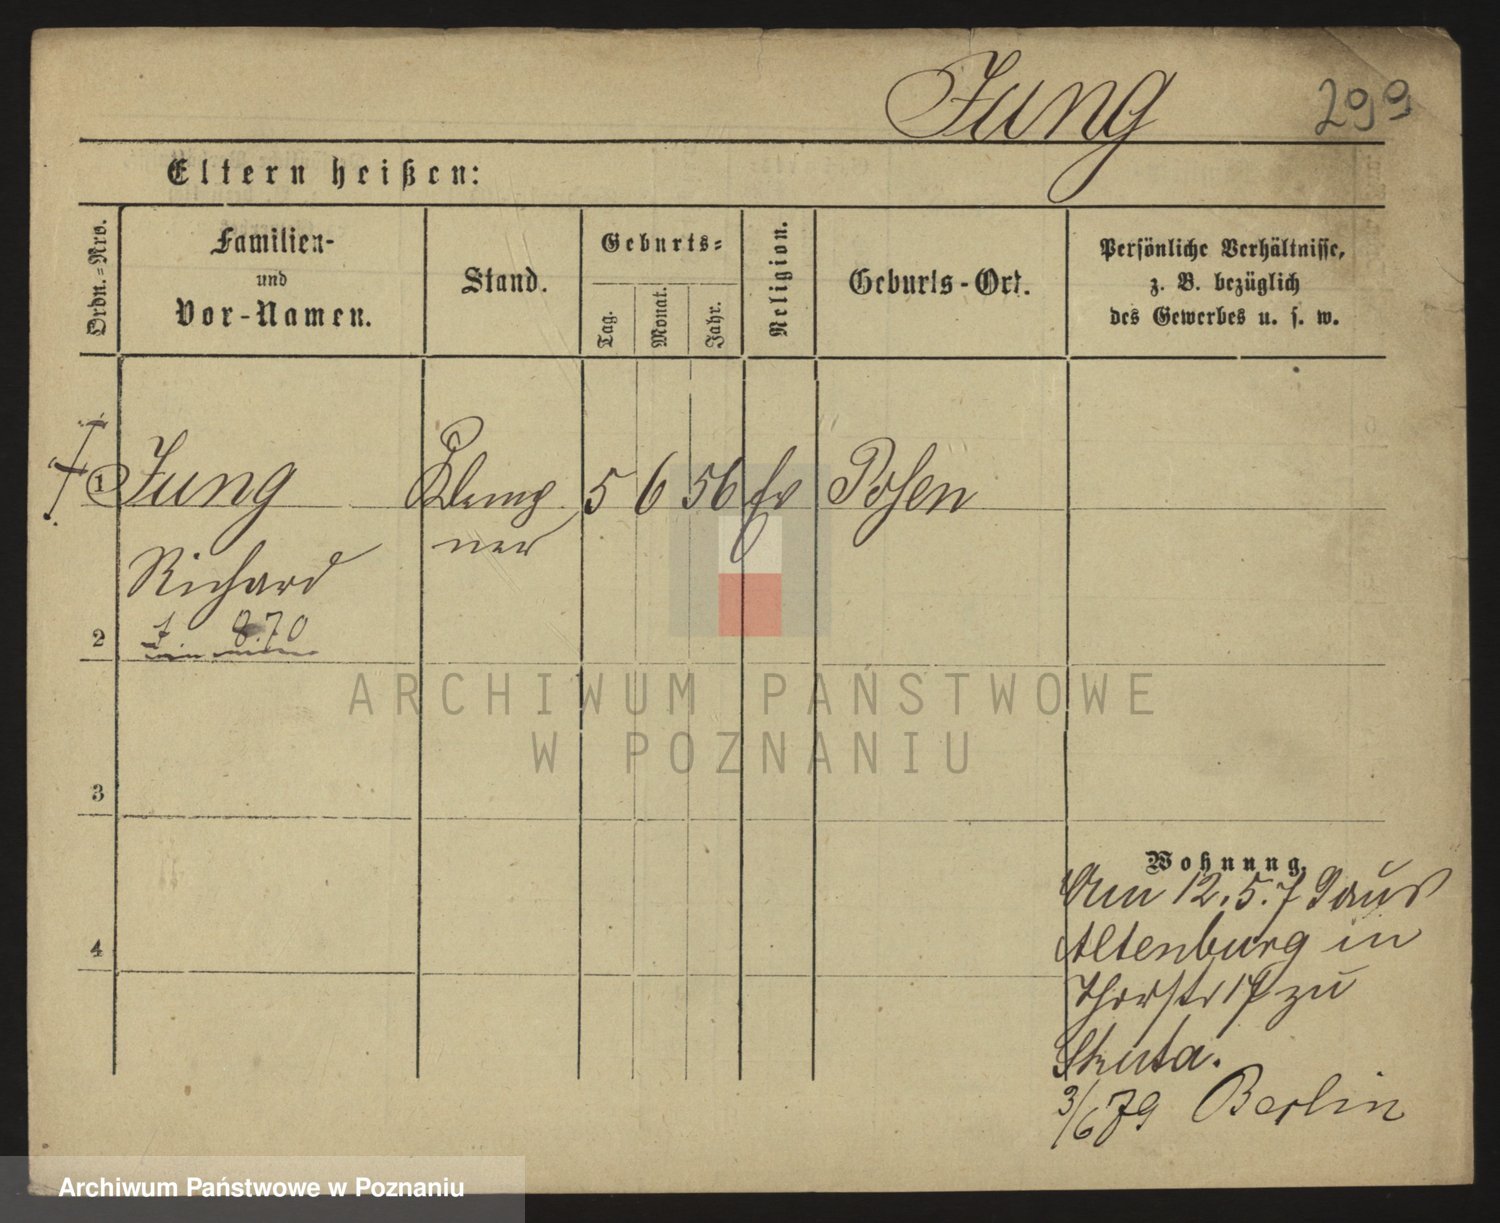 Jung
299
Eltern heißen:
Ordn.=Nro.
Familien-
und
Vor-Namen.
Stand.
Geburts=
Tag.
Monat.
Jahr.
Religion.
Geburts-Ort.
Persönliche Verhältnisse,
z. B. bezüglich
des Gewerbes u. s. w.
1 Jung Klemp 5 6 56 ev Posen
ner
Richard
8.70
2
ARCHIWUM PAŃSTWOWE
W POZNANIU
3
Wohnung.
Am 12.5.79 aus
4
Altenburg in
Thorstr 17 zu
Skuta.
3/6 79 Berlin
Archiwum Państwowe w Poznaniu